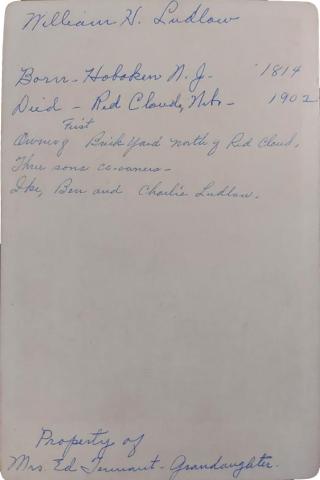 William H. Ludlow
Born - Hoboken N. J. - '1814
Died - Red Cloud, Nebr - 1902
First
Owning Brick Yard north of Red Cloud.
Three sons co-owners -
Ike, Ben and Charlie Ludlow.
Property of
Mrs. Ed Tennant - Grandaughter.